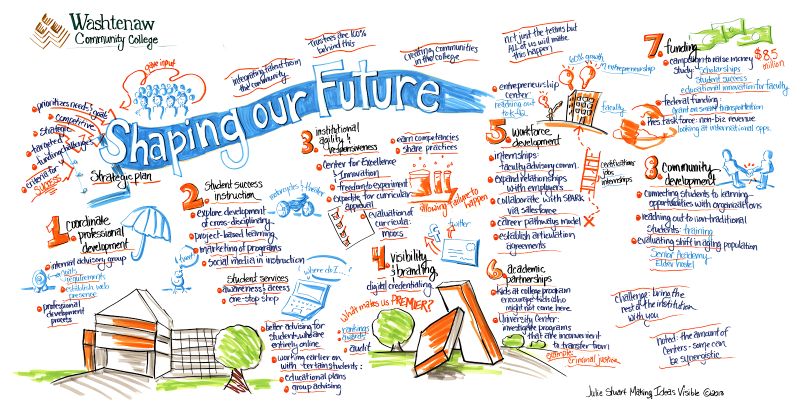 Washtenaw
Community College
Shaping our Future
Strategic plan
give input
prioritizes needs & goals
competitive
strategic
targeted
funding challenges
criteria for
success
integrating talent from
the community
Trustees are 100%
behind this
creating communities
in the college
not just the teams but
All of us will make
this happen
1. coordinate
professional
development
internal advisory group
goals
requirements
establish web
presence
professional
development
2. Student success
instruction
explore development
of cross-disciplinary
project-based learning
marketing of programs
social media in instruction
tweet
motorcycles & theater
Student services
awareness & access
one-stop shop
where do I...?
better advising for
students who are
entirely online
working earlier on
with certain students:
educational plans
group advising
3. institutional
agility &
responsiveness
Center for Excellence
& Innovation
freedom to experiment
expedite for curricular
approval
evaluation of
curricula:
moocs
earn competencies
share practices
allowing failure to
happen
twitter
4. visibility
& branding
digital credentialing
What makes us PREMIER?
rankings
awards
audit
entrepreneurship
center:
reaching out
to K-12
60% growth
in entrepreneurship
faculty
5. workforce
development
internships:
faculty advising comm.
expand relationships
with employers
collaborate with SPARK
via salesforce
career pathways model
establish articulation
agreements
certifications
jobs
internships
6. academic
partnerships
kids at college program
encourage kids who
might not come here
University Center:
investigate programs
that are inconvenient
to transfer from
example:
criminal justice
7. funding
campaign to raise money $8.5
million
Study: scholarships
student success
educational innovation for faculty
federal funding:
grant on social transportation
Pres. task force: non-biz revenue
looking at international opps.
8. Community
development
connecting students to learning
opportunities with organizations
reaching out to non-traditional
students: training
evaluating shift in aging population
Senior Academy
Elder model
Challenge: bring the
rest of the institution
with you
noted: the amount of
centers: some can
be synergistic
Julie Stuart Making Ideas Visible ©2013